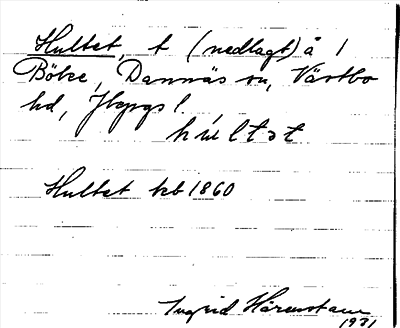 Hultet, t (nedlagt) å 1
Böke, Dannäs sn, Västbo
hd, Jkpgs l.
húltət
Hultet kb 1860
Ingrid Härenstam
1971